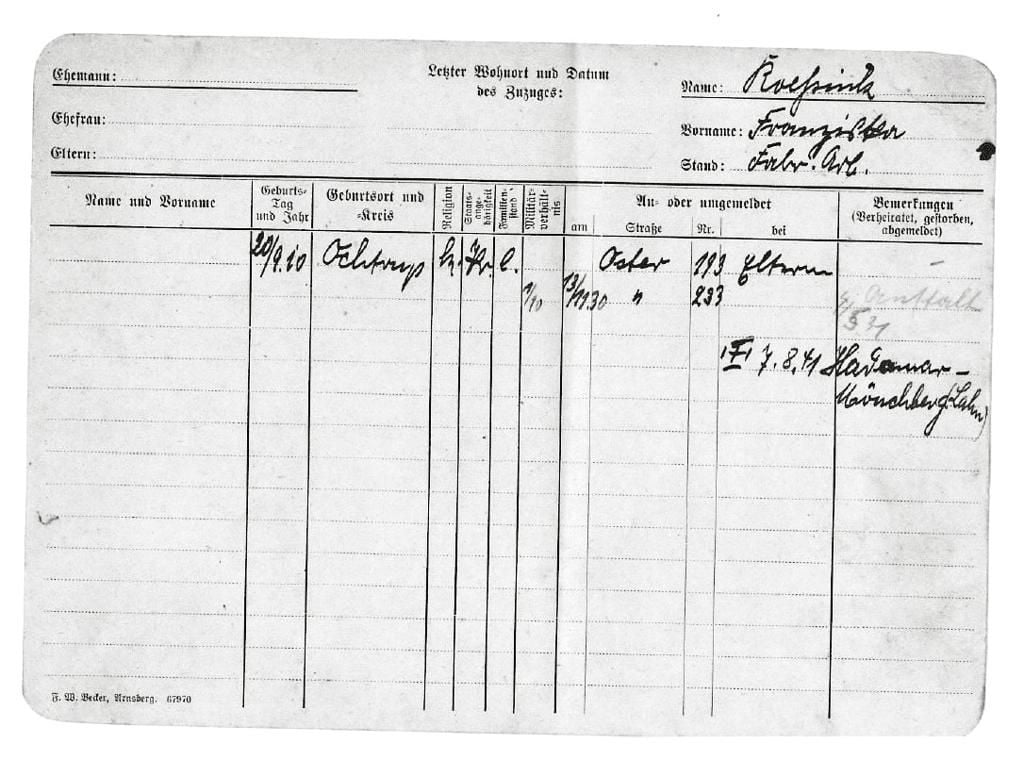 Ehemann:
Letzter Wohnort und Datum
des Zuzuges:
Name:
Ehefrau:
Vorname: Franziska
Eltern:
Stand: Fabr. Arb.
Name und Vorname
Geburts-
Tag
und Jahr
Geburtsort und
-Kreis
Religion
Staats-
ange-
hörigkeit
Familien-
stand
Militär-
verhält-
nis
An- oder umgemeldet
am
Straße
Nr.
bei
Bemerkungen
(Verheiratet, gestorben,
abgemeldet)
20/9.10 Ochtrup k. Pr. l. Oster 193 Eltern —
1/10 13/11 30 " 233 Anstalt
7.8.41 Hadamar-
Mönchberg (Lahn)
F. W. Becker, Arnsberg. 67970